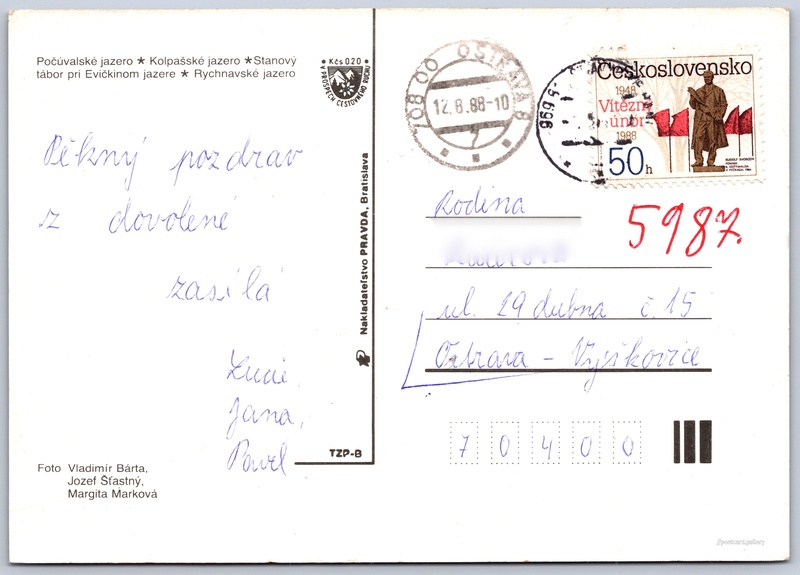 Počúvalské jazero ★ Kolpašské jazero ★ Stanový
tábor pri Evičkinom jazere ★ Rychnavské jazero
Kčs 0,20
V PROSPECH CESTOVNÉHO RUCHU
708 00 OSTRAVA 8
12.8.88-10
Československo
1948
Vítězný
únor
1988
50h
Pěkný pozdrav
z dovolené
zasílá
Lucie,
Jana,
Pavel
Nakladateľstvo PRAVDA, Bratislava
TZP-B
Rodina
5987.
ul. 29 dubna č. 15
Ostrava - Vyškovice
70400
Foto Vladimír Bárta,
Jozef Šťastný,
Margita Marková